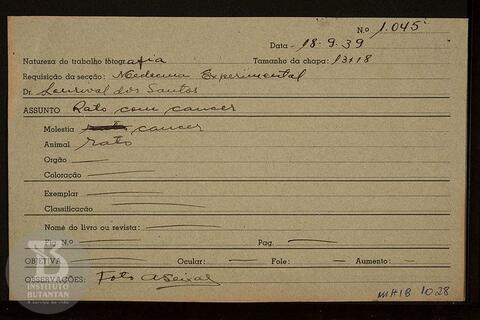 N.o 1.045
Data 18-9-39
Natureza do trabalho fotografia Tamanho da chapa: 13x18
Requisição da secção: Medecina Experimental
Dr. Lourival dos Santos
ASSUNTO Rato com cancer
Molestia rato cancer
Animal rato
Orgão
Coloração
Exemplar
Classificação
Nome do livro ou revista:
Fig. N.o Pag.
OBJETIVA Ocular: Fole: Aumento:
OBSERVAÇÕES: Foto A Seixal
INSTITUTO
BUTANTAN
A serviço da vida
MHIB 1028